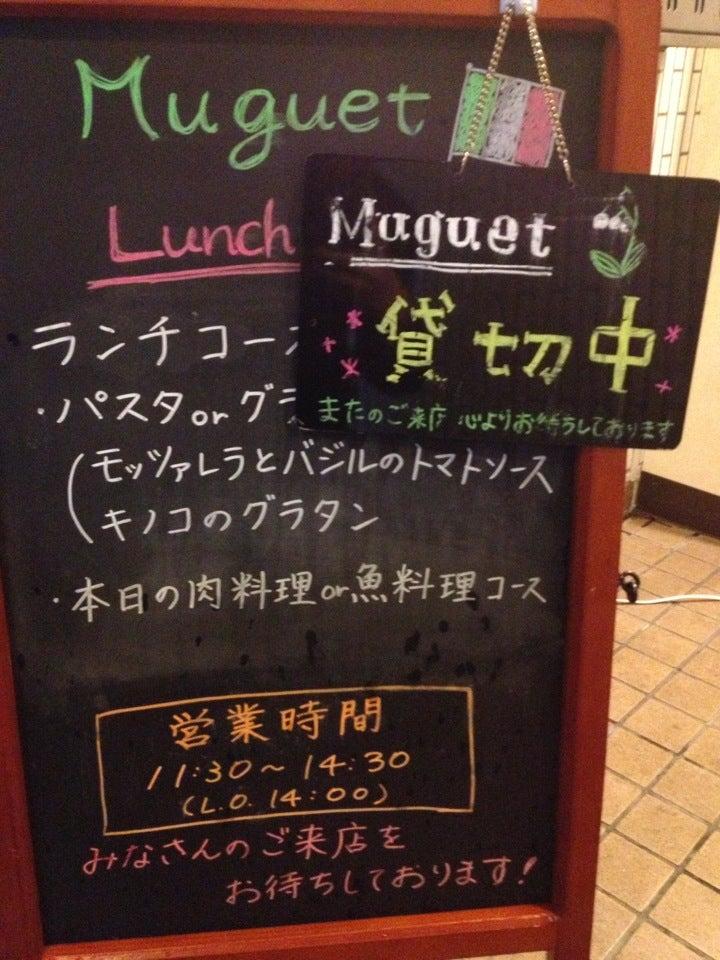 Muguet
Lunch
ランチコース
・パスタorグラ
モッツァレラとバジルのトマトソース
キノコのグラタン
・本日の肉料理or魚料理コース
営業時間
11:30～14:30
(L.O. 14:00)
みなさんのご来店を
お待ちしております！
Muguet
貸切中
またのご来店 心よりお待ちしております